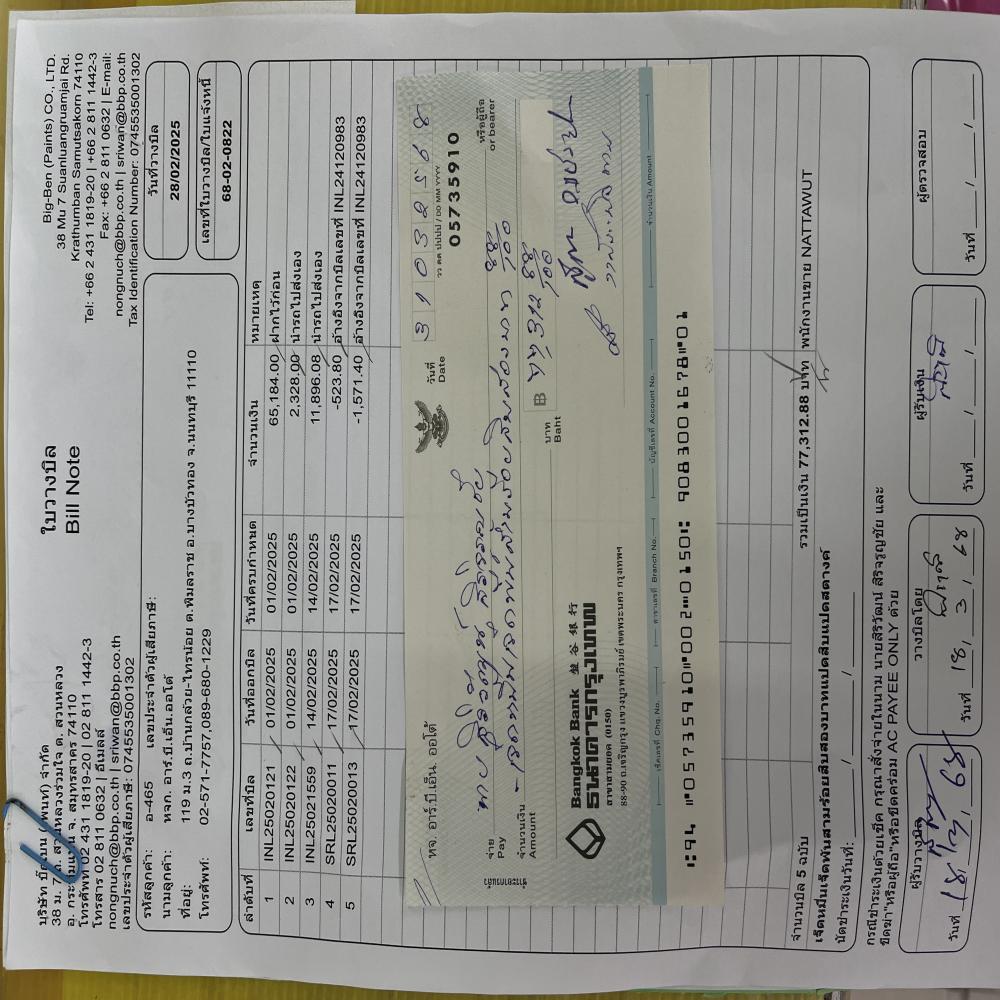 บริษัท บิ๊กเบน (เพนท์) จำกัด
38 ม. 7 ถ. สวนหลวงร่วมใจ ต. สวนหลวง
อ. กระทุ่มแบน จ. สมุทรสาคร 74110
โทรศัพท์ 02 431 1819-20 | 02 811 1442-3
โทรสาร 02 811 0632 | อีเมลล์
nongnuch@bbp.co.th | sriwan@bbp.co.th
เลขประจำตัวผู้เสียภาษี: 0745535001302
ใบวางบิล
Bill Note
Big-Ben (Paints) CO., LTD.
38 Mu 7 Suanluangruamjai Rd.
Krathumban Samutsakorn 74110
Tel: +66 2 431 1819-20 | +66 2 811 1442-3
Fax: +66 2 811 0632 | E-mail:
nongnuch@bbp.co.th | sriwan@bbp.co.th
Tax Identification Number: 0745535001302
รหัสลูกค้า: อ-465 เลขประจำตัวผู้เสียภาษี:
นามลูกค้า: หจก. อาร์.บี.เอ็น. ออโต้
ที่อยู่: 119 ม.3 ถ.บ้านกล้วย-ไทรน้อย ต.พิมลราช อ.บางบัวทอง จ.นนทบุรี 11110
โทรศัพท์: 02-571-7757,089-680-1229
วันที่วางบิล
28/02/2025
เลขที่ใบวางบิล/ใบแจ้งหนี้
68-02-0822
ลำดับที่ เลขที่บิล วันที่ออกบิล วันที่ครบกำหนด จำนวนเงิน หมายเหตุ
1 INL25020121 01/02/2025 01/02/2025 65,184.00 ฝากไว้ก่อน
2 INL25020122 01/02/2025 01/02/2025 2,328.00 นำรถไปส่งเอง
3 INL25021559 14/02/2025 14/02/2025 11,896.08 นำรถไปส่งเอง
4 SRL25020011 17/02/2025 17/02/2025 -523.80 อ้างอิงจากบิลเลขที่ INL24120983
5 SRL25020013 17/02/2025 17/02/2025 -1,571.40 อ้างอิงจากบิลเลขที่ INL24120983
หจ. อาร์.บี.เอ็น. ออโต้
วันที่
Date
31032568
วว ดด ปปปป / DD MM YYYY
05735910
จ่าย
Pay
หรือผู้ถือ
or bearer
จำนวนเงิน
Amount
บาท
Baht
฿ 77,312 88/100
Bangkok Bank 盤谷銀行
ธนาคารกรุงเทพ
สาขาสามยอด (0150)
88-90 ถ.เจริญกรุง แขวงบูรพาภิรมย์ เขตพระนคร กรุงเทพฯ
เช็คเลขที่ Chq. No. สาขาเลขที่ Branch No. บัญชีเลขที่ Account No. จำนวนเงิน Amount
05735910 002 0150 9083001678 01
จำนวนบิล 5 ฉบับ รวมเป็นเงิน 77,312.88 บาท พนักงานขาย NATTAWUT
เจ็ดหมื่นเจ็ดพันสามร้อยสิบสองบาทแปดสิบแปดสตางค์
นัดชำระเงินวันที่: / /
กรณีชำระเงินด้วยเช็ค กรุณาสั่งจ่ายในนาม นายสิริวัฒน์ สิริจรูญชัย และ
ขีดฆ่า"หรือผู้ถือ"หรือขีดคร่อม AC PAYEE ONLY ด้วย
ผู้รับวางบิล วางบิลโดย ผู้รับเงิน ผู้ตรวจสอบ
วันที่ 18/3/68 วันที่ 18/3/68 วันที่ / / วันที่ / /